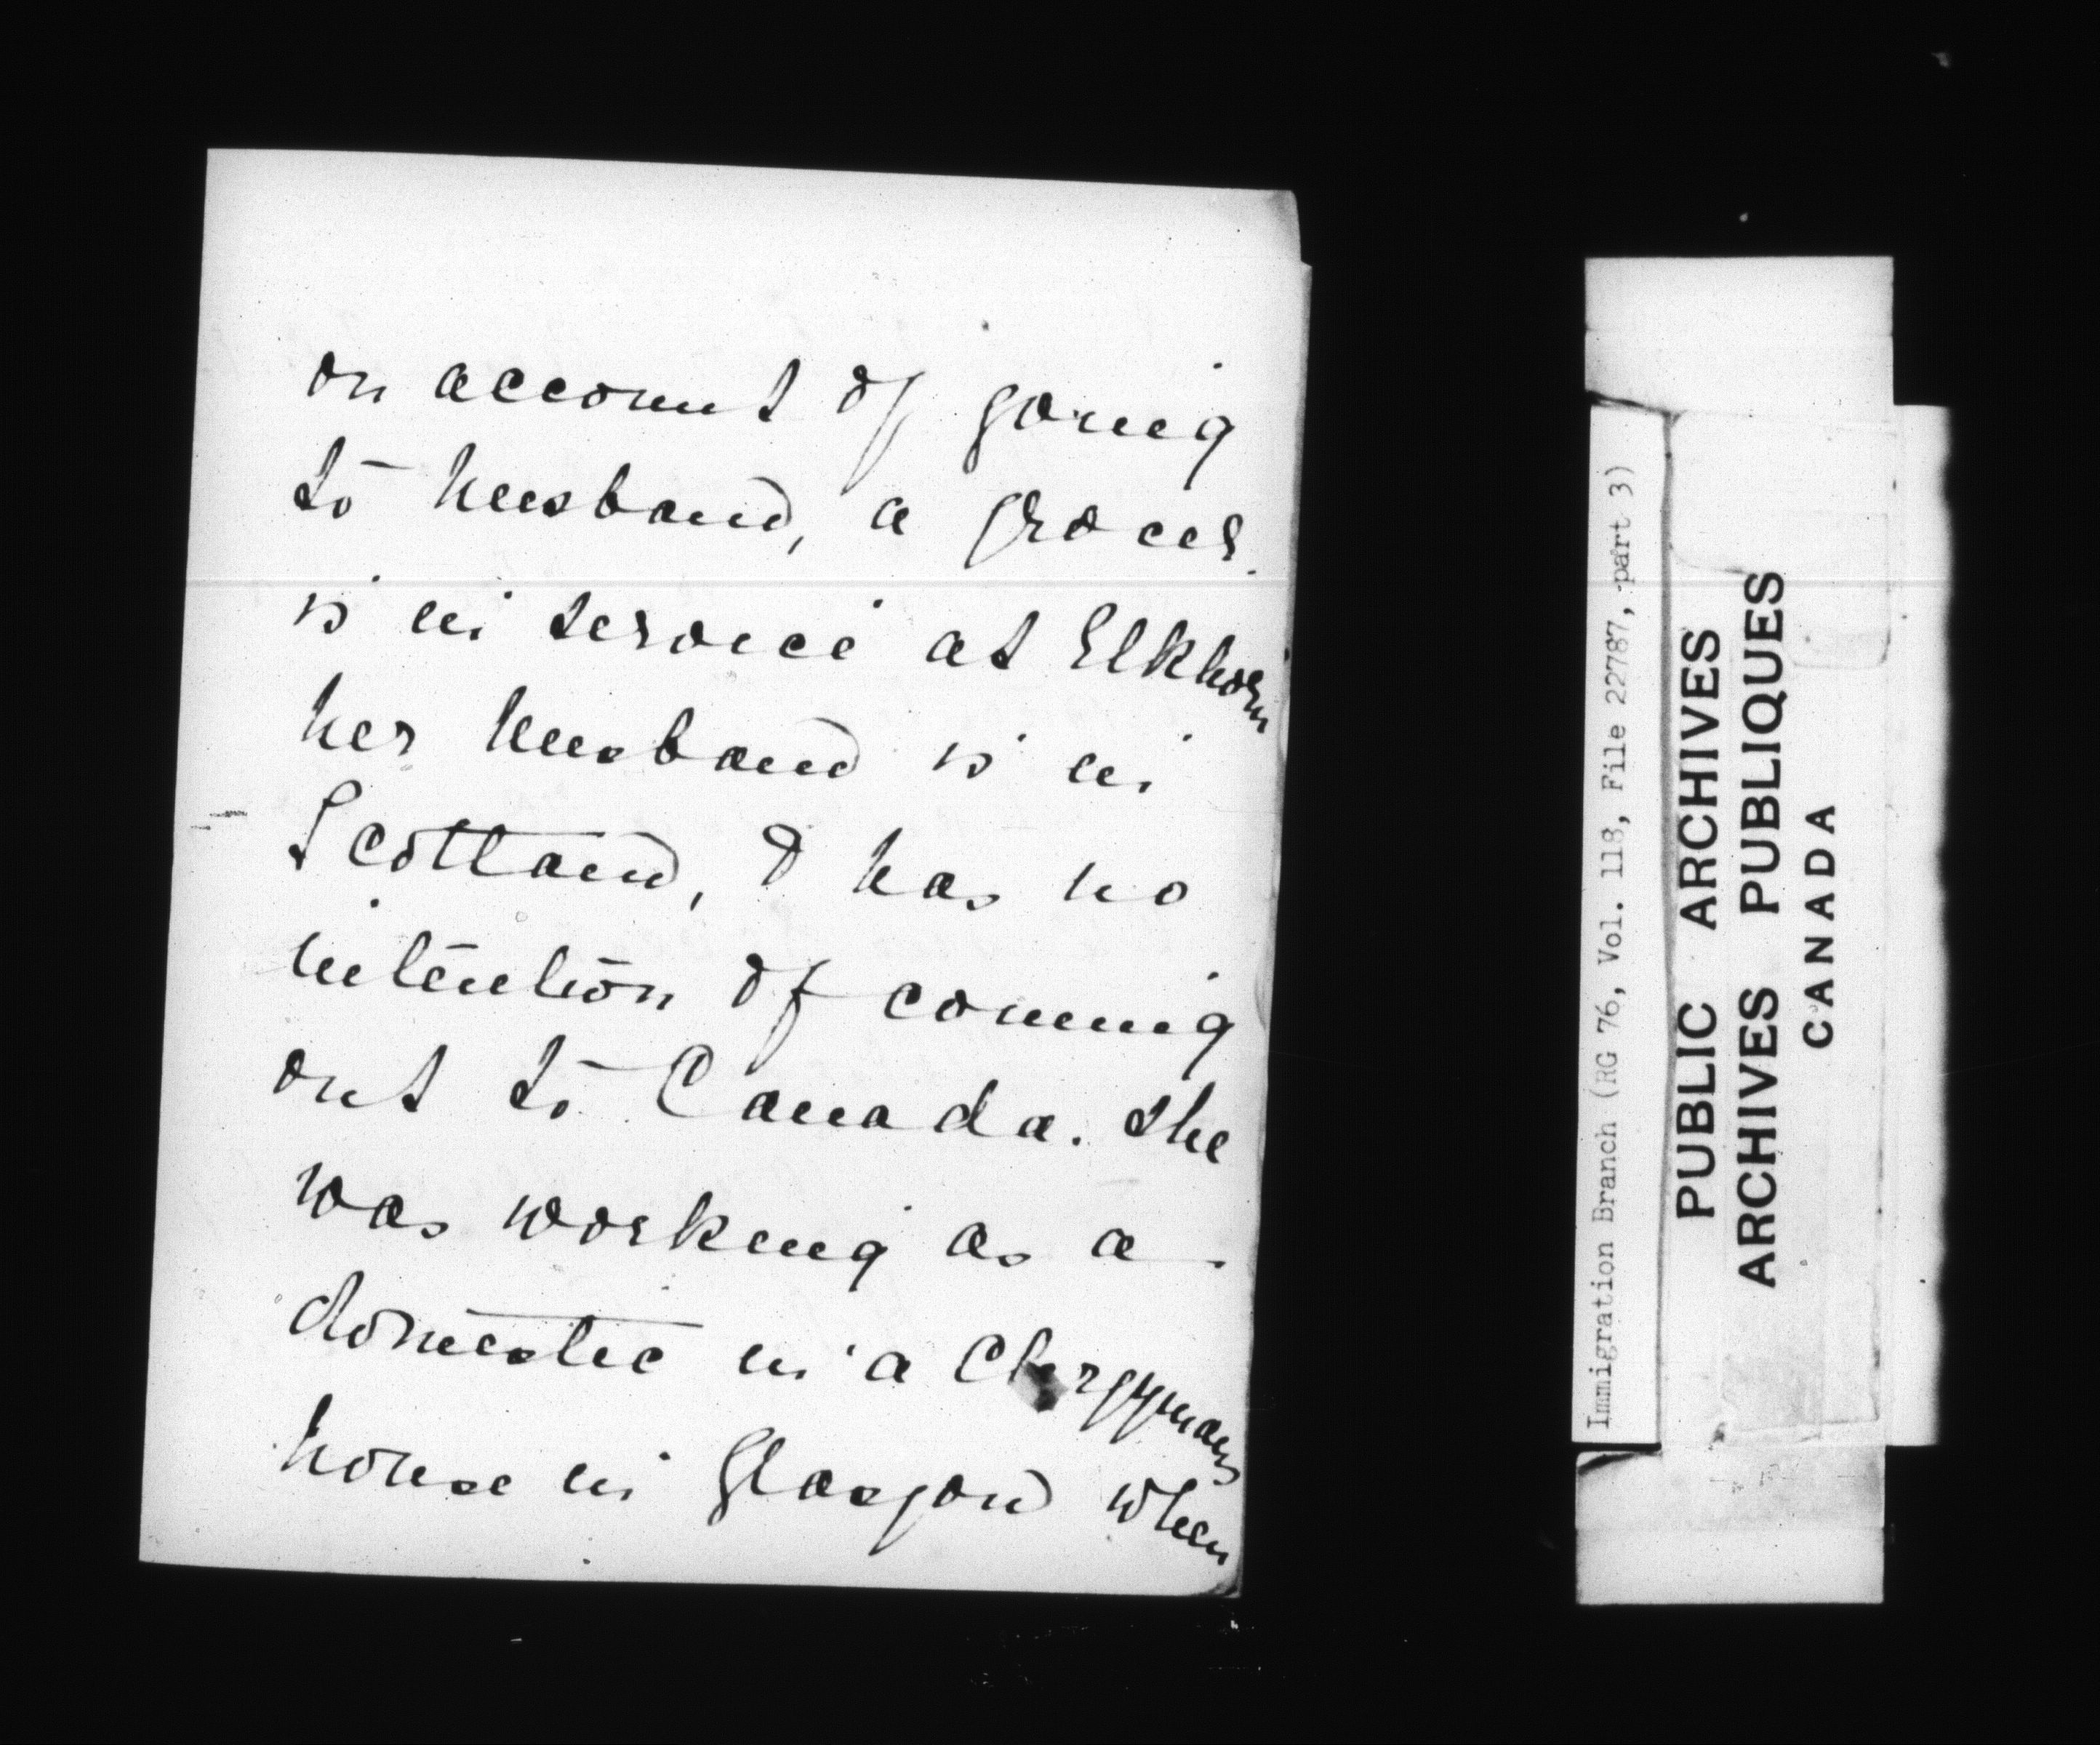 on account of going
to husband, a grocer.
is in service at Elkhorn
her husband is in
Scotland, & has no
intention of coming
out to Canada. She
was working as a
domestic in a Clergymans
house in Glasgow when
Immigration Branch (RG 76, Vol. 118, File 22787, part 3)
PUBLIC ARCHIVES
ARCHIVES PUBLIQUES
CANADA